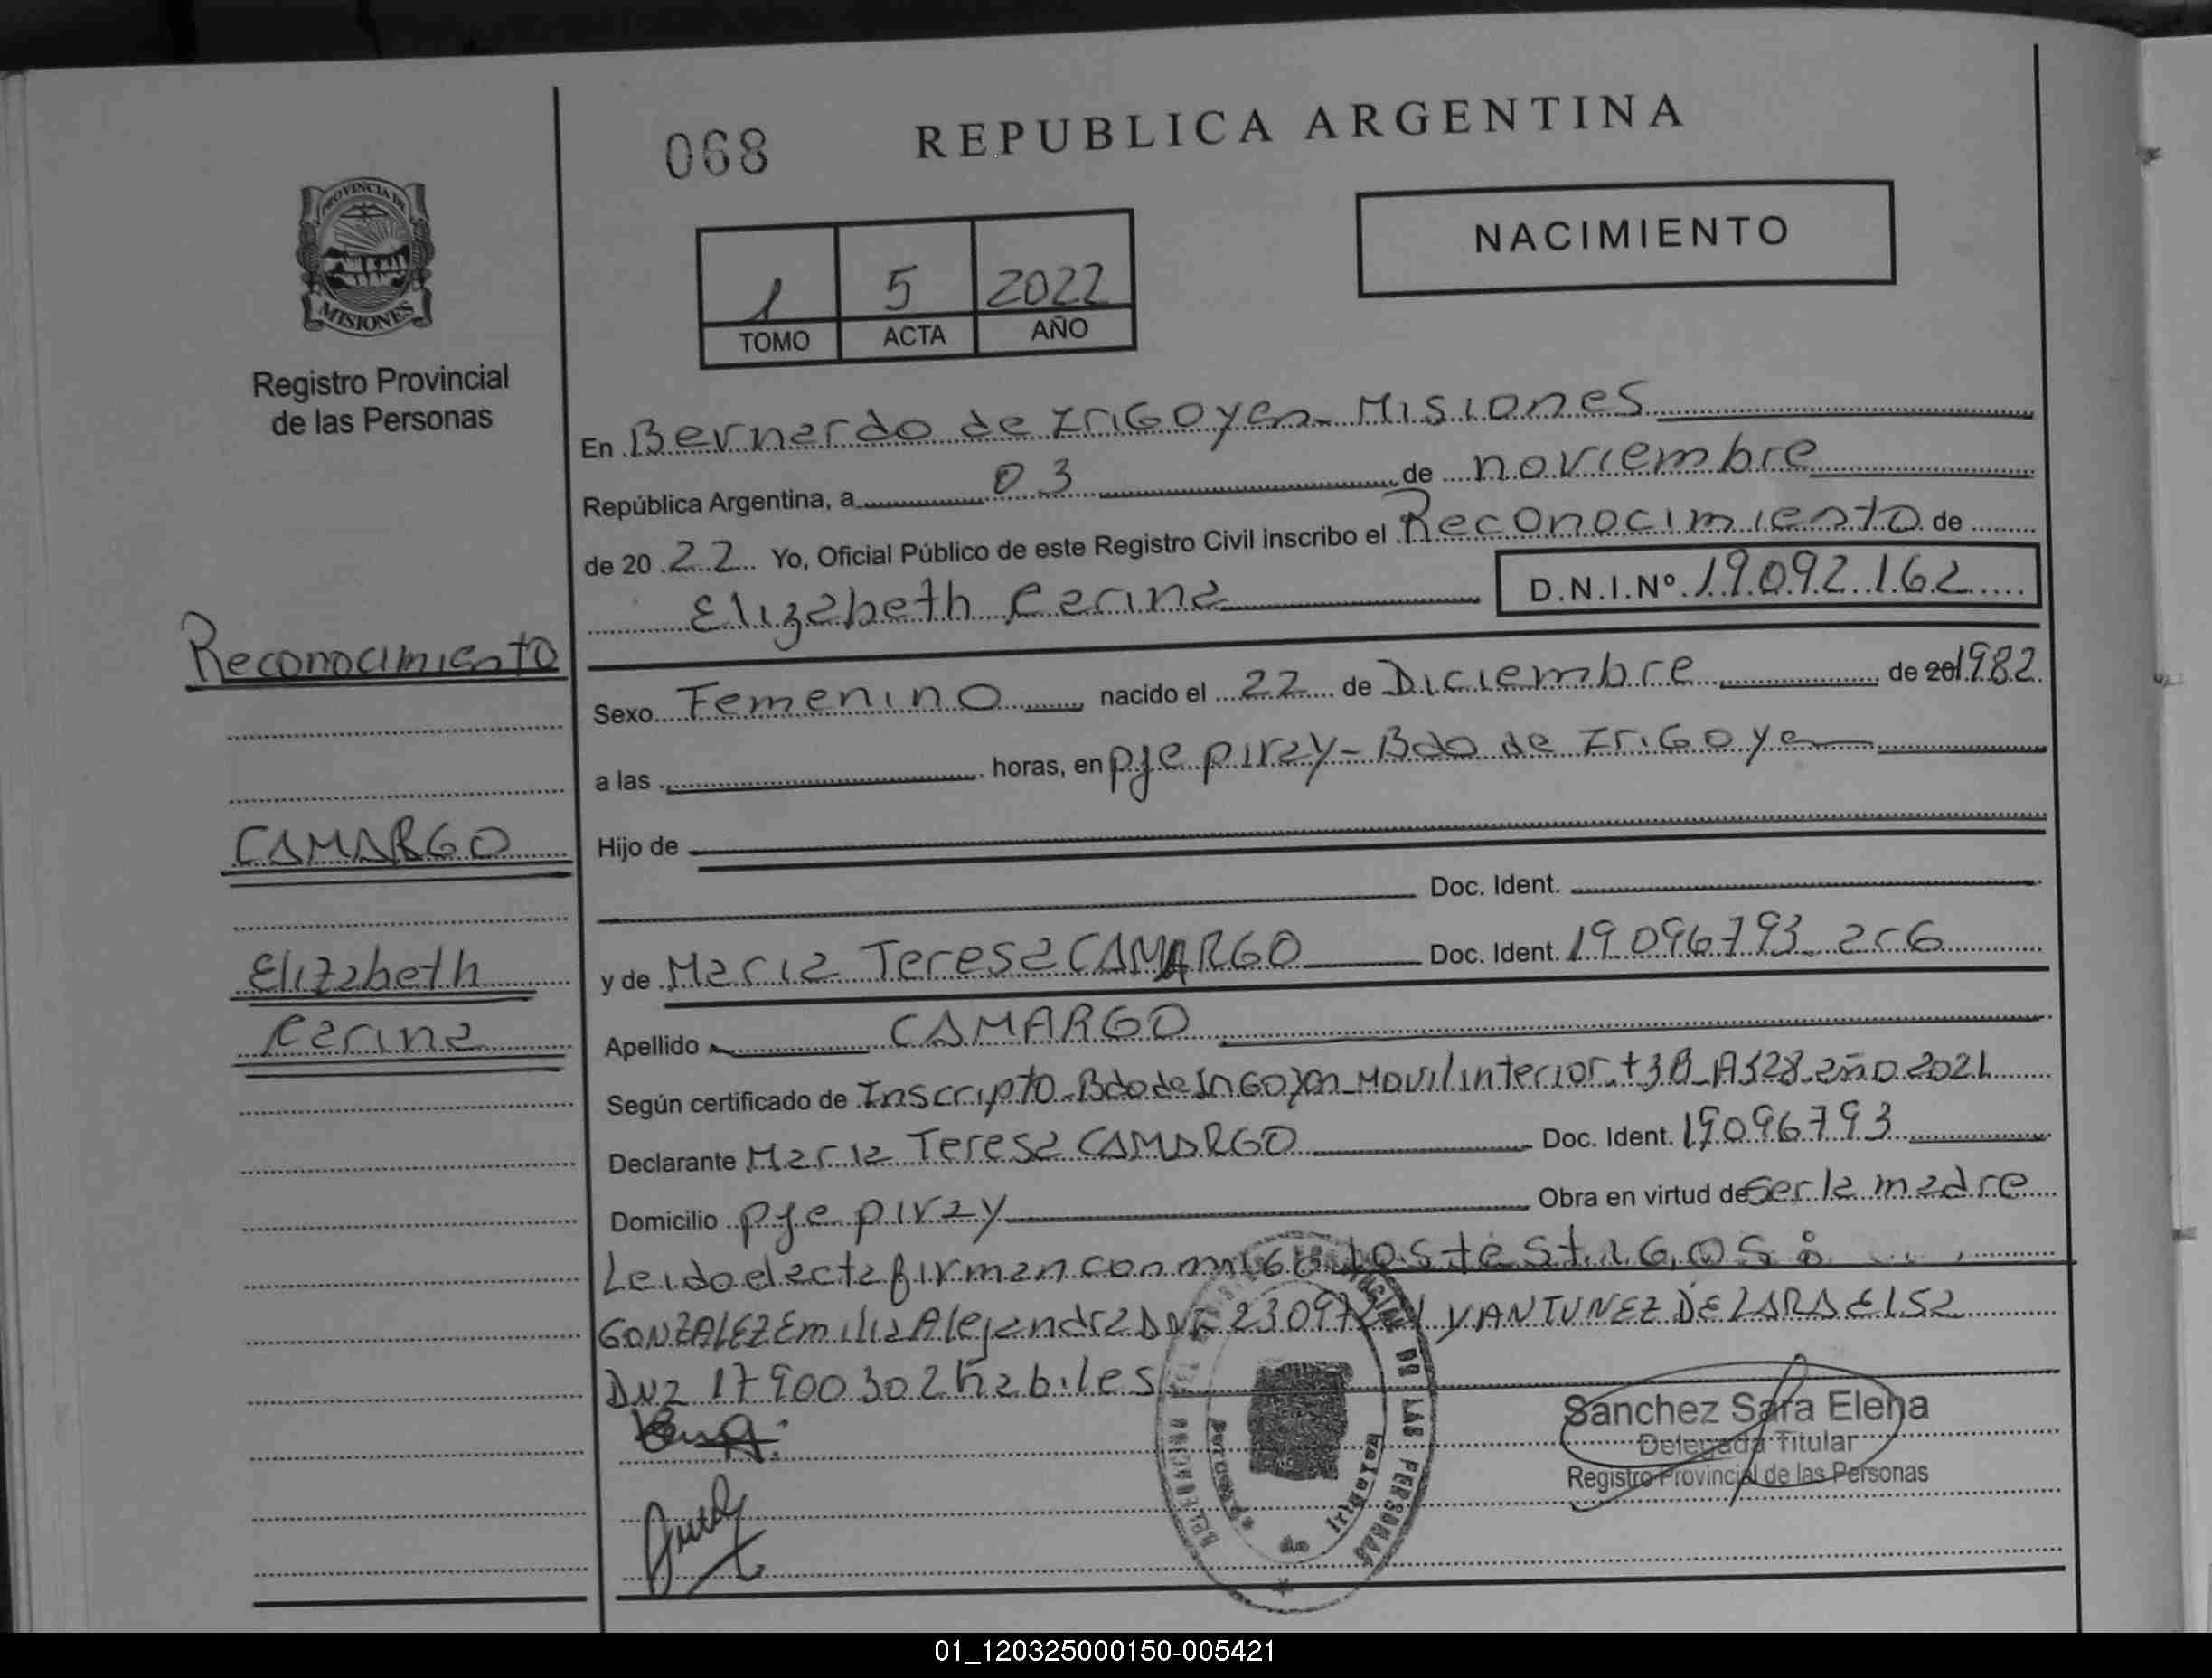 068
REPUBLICA ARGENTINA
NACIMIENTO
PROVINCIA DE
MISIONES
Registro Provincial
de las Personas
1 5 2022
TOMO ACTA AÑO
En Bernardo de IriGoyen - Misiones
República Argentina, a 03 de noviembre
de 20 22 Yo, Oficial Público de este Registro Civil inscribo el Reconocimiento de
Elizabeth Carina
D.N.I.Nº 19.092.162
Reconocimiento
Sexo Femenino nacido el 22 de Diciembre de 20 1982
a las horas, en pje piray - Bdo de IriGoyen
CAMARGO
Hijo de
Doc. Ident.
Elizabeth
y de Maria Teresa CAMARGO Doc. Ident. 19.096793 arG
Carina
Apellido CAMARGO
Según certificado de Inscripto - Bdo de IriGoyen - Movil interior - t3B - A328 - año 2021
Declarante Maria Teresa CAMARGO Doc. Ident. 19096793
Domicilio pje piray Obra en virtud de ser la madre
Leido el acta firman con migo los testiGos:
GONZALEZ Emilia Alejandra DNI 23097 Y ANTUNEZ DE LARA Elsa
DNI 17900302 habiles
Sanchez Sara Elena
Delegada Titular
Registro Provincial de las Personas
DE LAS PERSONAS
Bernardo de Irigoyen
01_120325000150-005421